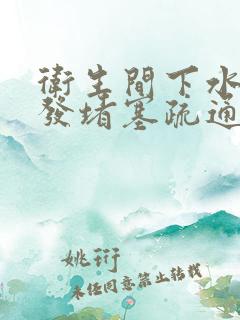 衛生間下水
發堵塞疏通
姚珩
未經同意禁止轉載